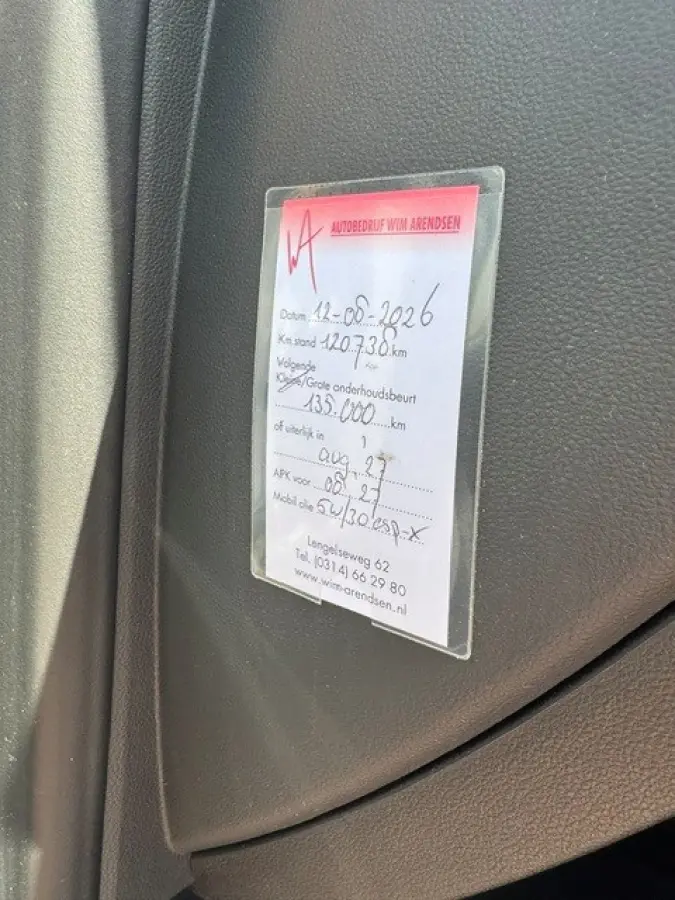 WA AUTOBEDRIJF WIM ARENDSEN
Datum 12-08-2026
Km.stand 120.730 km
Volgende
Kleine/Grote onderhoudsbeurt
135.000 km
of uiterlijk in
aug '27
APK voor 08 '27
Mobil olie 5w/30 esp-x
Lengelseweg 62
Tel. (0314) 66 29 80
www.wim-arendsen.nl